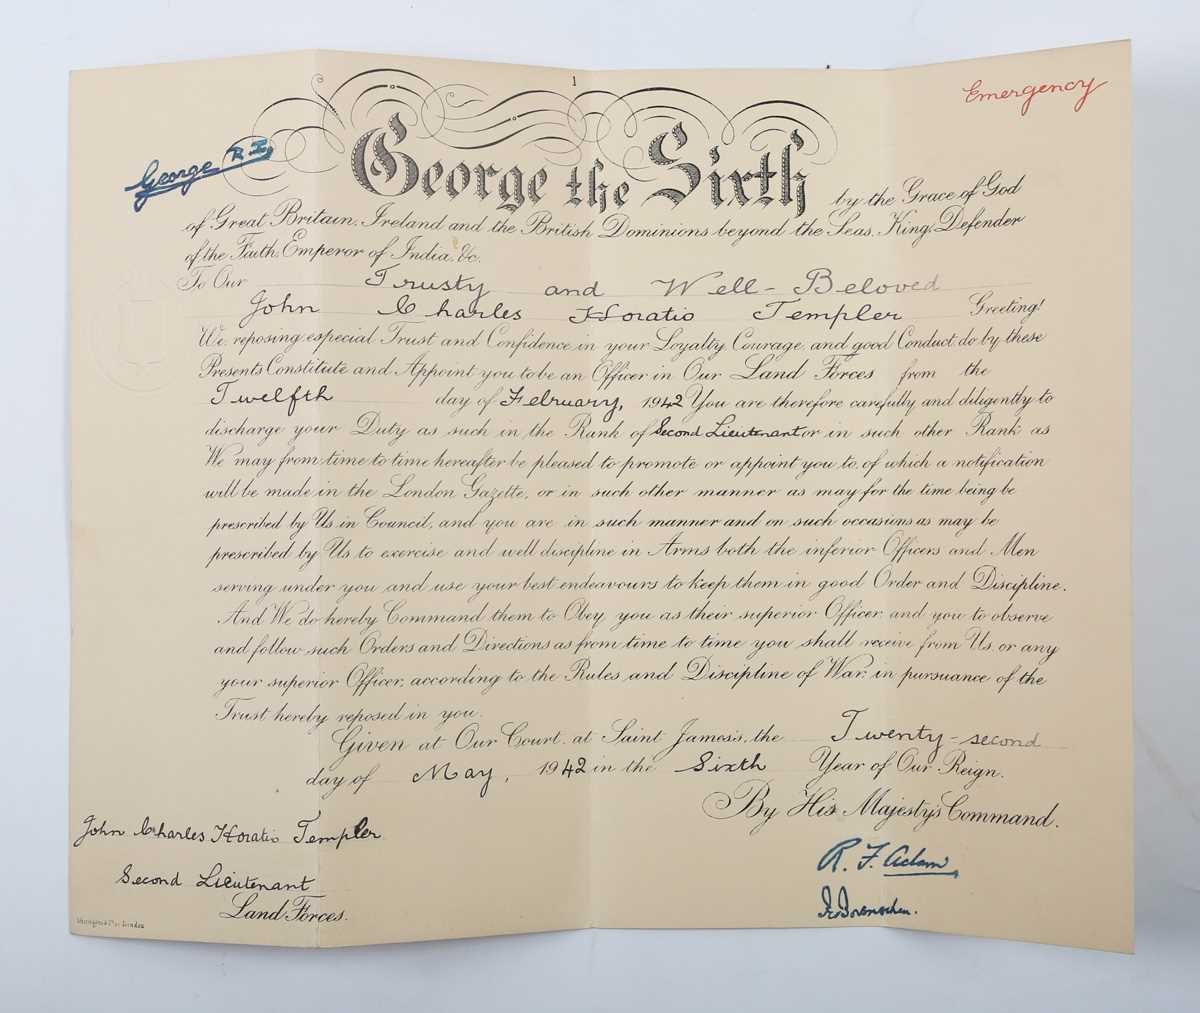 1
Emergency
George R.I.
George the Sixth by the Grace of God
of Great Britain, Ireland and the British Dominions beyond the Seas, King, Defender
of the Faith, Emperor of India, &c.
To Our Trusty and Well-Beloved
John Charles Horatio Templer Greeting!
We, reposing especial Trust and Confidence in your Loyalty, Courage, and good Conduct, do by these
Presents Constitute and Appoint you to be an Officer in Our Land Forces from the
Twelfth day of February, 1942 You are therefore carefully and diligently to
discharge your Duty as such in the Rank of Second Lieutenant or in such other Rank as
We may from time to time hereafter be pleased to promote or appoint you to, of which a notification
will be made in the London Gazette, or in such other manner as may for the time being be
prescribed by Us in Council, and you are in such manner and on such occasions as may be
prescribed by Us to exercise and well discipline in Arms both the inferior Officers and Men
serving under you and use your best endeavours to keep them in good Order and Discipline.
And We do hereby Command them to Obey you as their superior Officer, and you to observe
and follow such Orders and Directions as from time to time you shall receive from Us, or any
your superior Officer, according to the Rules and Discipline of War, in pursuance of the
Trust hereby reposed in you.
Given at Our Court, at Saint James's, the Twenty-second
day of May, 1942 in the Sixth Year of Our Reign.
By His Majesty's Command.
John Charles Horatio Templer
R. F. Adam
Second Lieutenant
Land Forces.
London